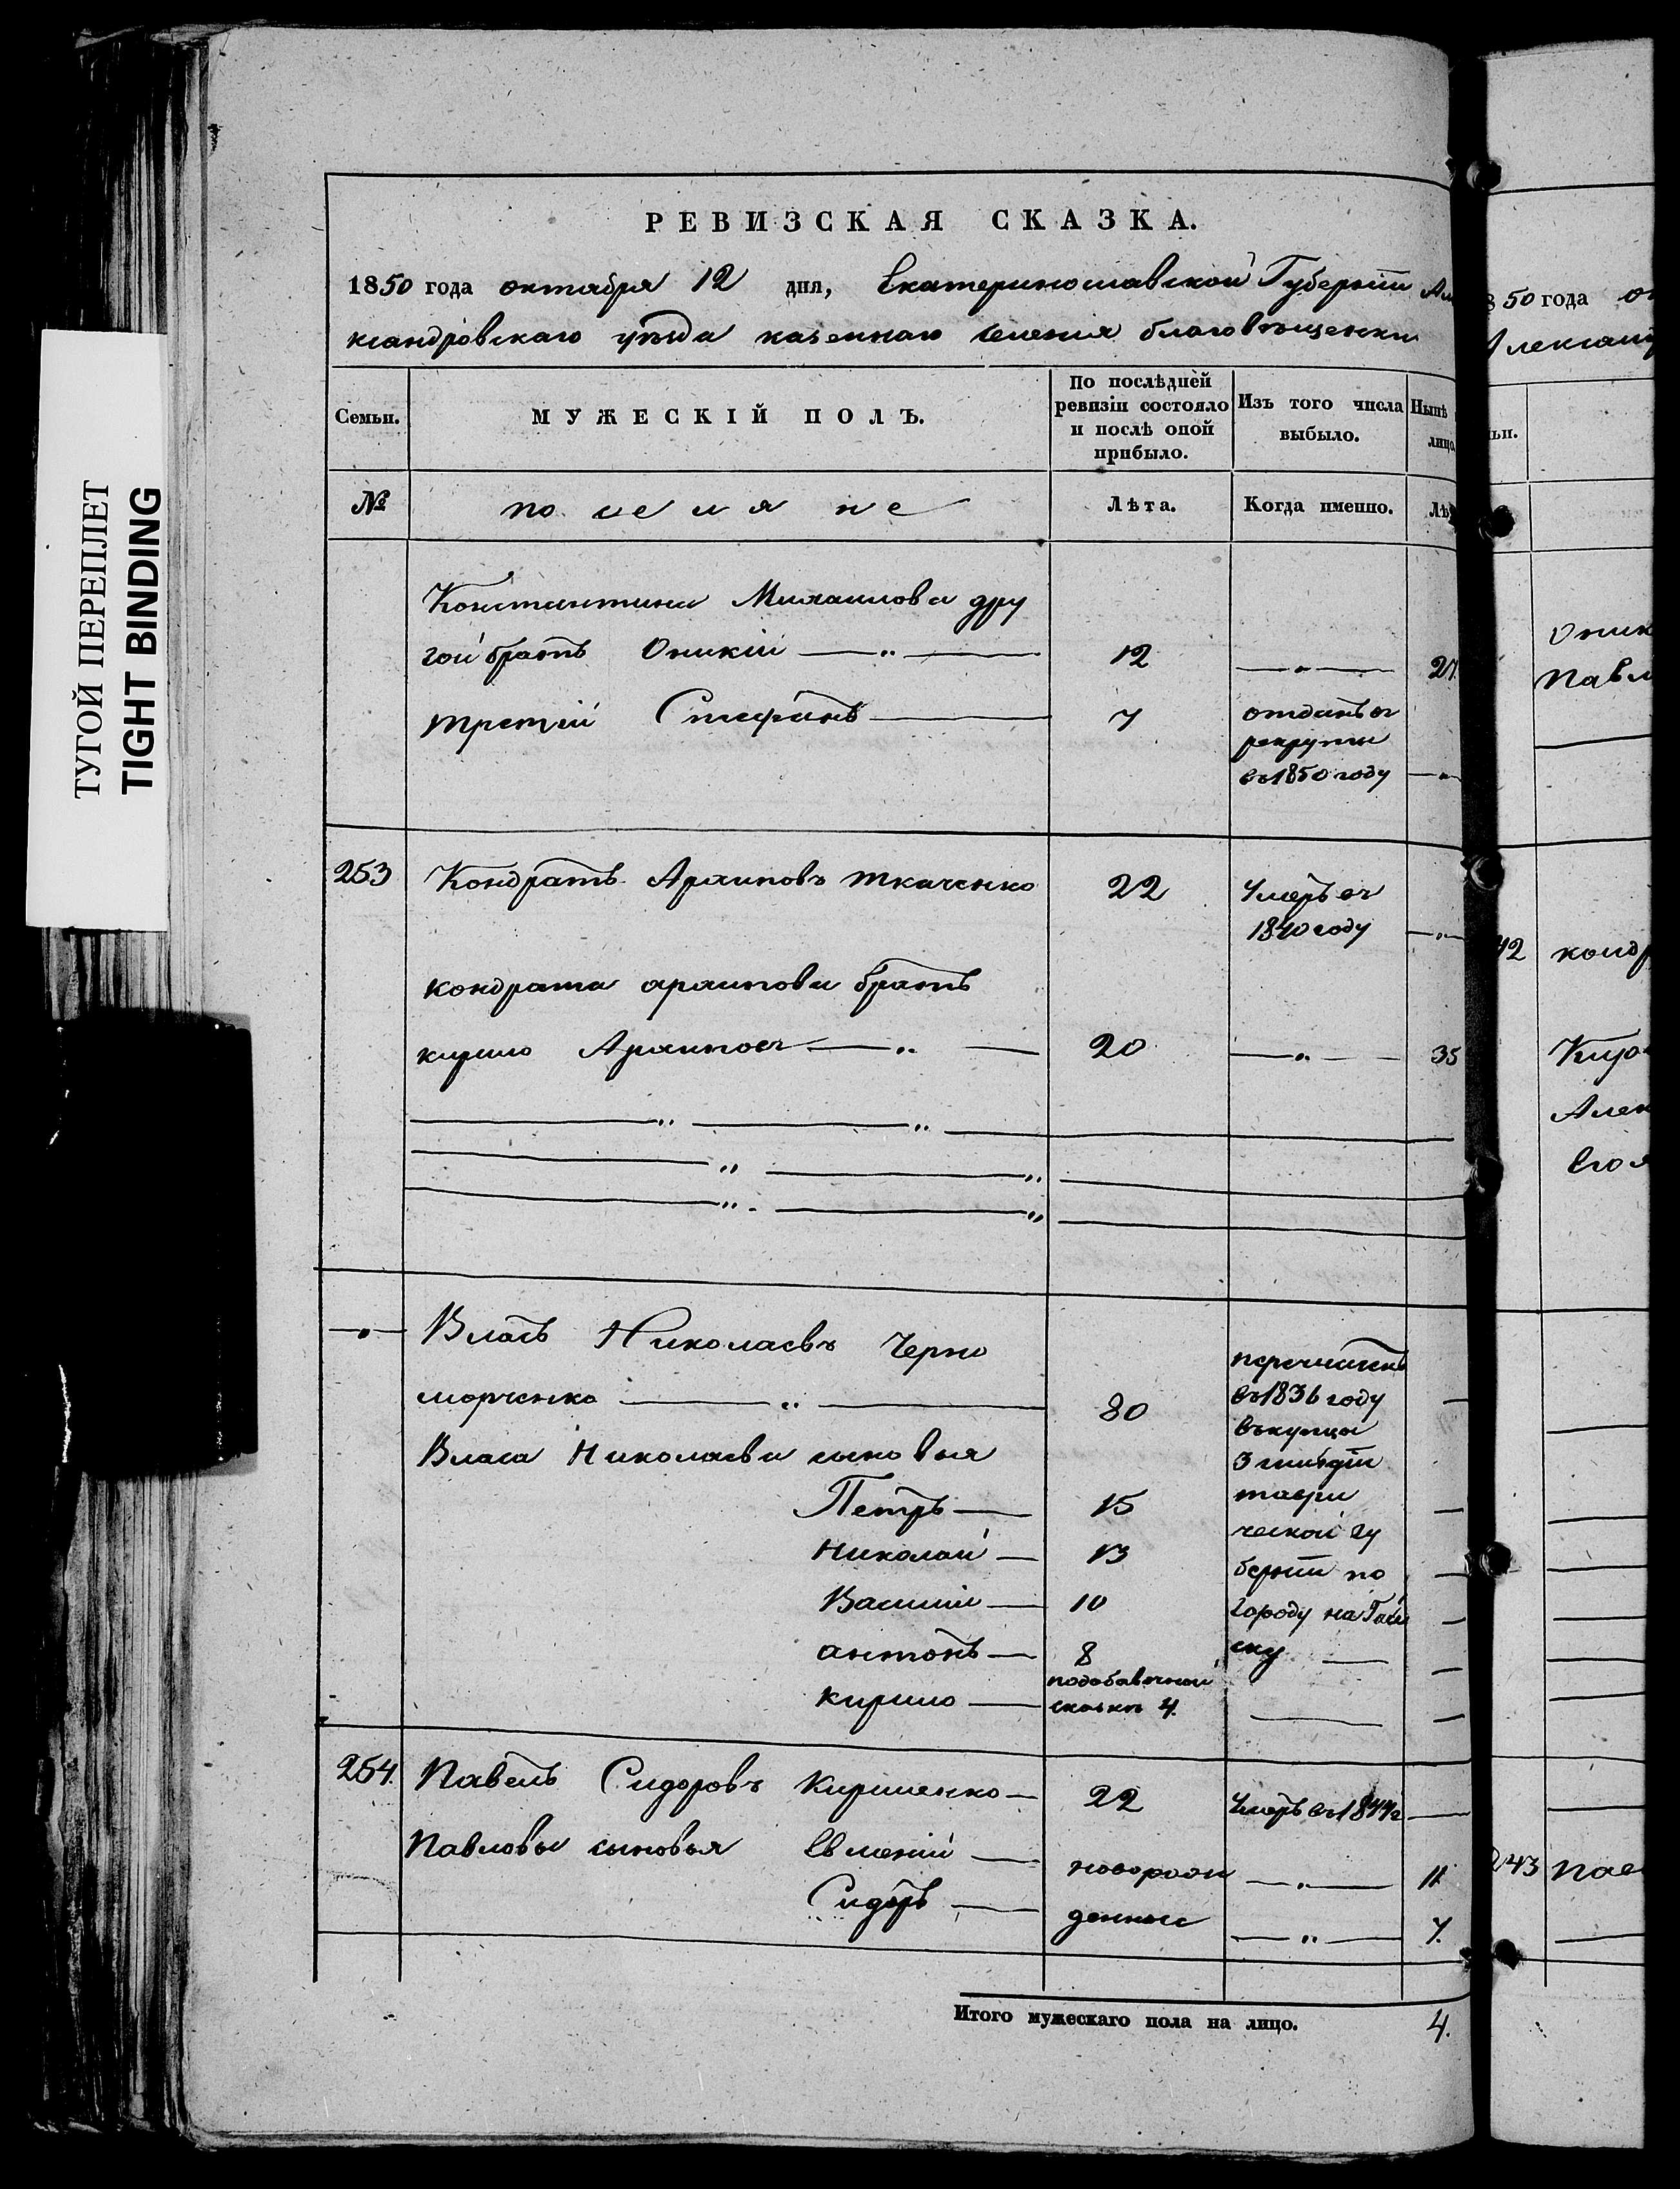 ТУГОЙ ПЕРЕПЛЕТ
TIGHT BINDING
РЕВИЗСКАЯ СКАЗКА.
1850 года октября 12 дня, Екатеринославской Губернiи Але
ксандровскаго уѣзда казеннаго селенiя благовѣщенки
Семьи. МУЖЕСКIЙ ПОЛЪ. По послѣдней ревизiи состояло и послѣ оной прибыло. Изъ того числа выбыло. Нынѣ лицо
№ поселяне Лѣта. Когда именно. Лѣ
Константина Михаилова дру
гой братъ Оникiй — „ — 12 — „ — 27.
третiй Стефанъ — 7 отданъ въ
рекруты
въ 1850 году — „
253 Кондратъ Архиповъ ткаченко 22 Умеръ въ
1840 году — „
кондрата архипова братъ
кирило Архиповъ — „ — 20 — „ — 35
— „ — „ —
— „ — „ —
— „ — „ —
— „ — Власъ Николаевъ Черно
морченко — „ — 80
перечисленъ
въ 1836 году
въ купцы
3 гильдiи
таври
ческой гу
бернiи по
городу
Власа Николаева сыновья
Петръ — 15
Николай — 13
Василiй — 10
антонъ — 8
кирило — подобавочной
сказкѣ 4.
254. Павелъ Сидоровъ Кириленко — 22 Умеръ въ 1844 г —
Павловы сыновья Евменiй — новорож — „ — 11.
Сидоръ — денные — „ — 7.
Итого мужескаго пола на лицо. 4.
850 года ок
Александ
ьи.
Оник
Павл
42 конд
Кир
Алек
Его
243 пав